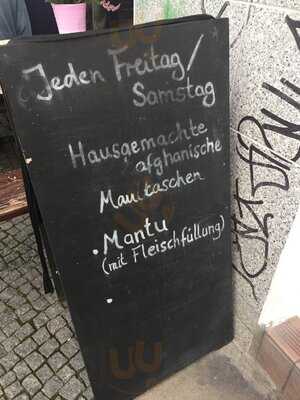 Jeden Freitag/
Samstag
Hausgemachte
afghanische
Maultaschen
• Mantu
(mit Fleischfüllung)
•